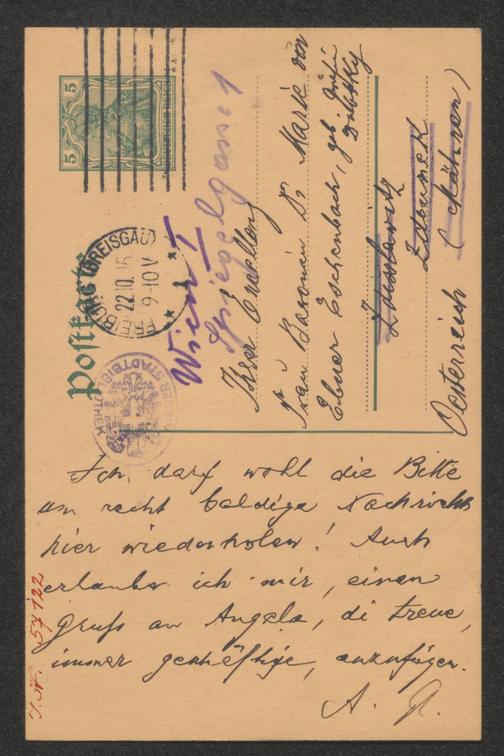 Postkarte
5 5
FREIBURG (BREISGAU)
22.10.15
9-10 V
Wien I
Spiegelgasse 1
Ihrer Exzellenz
Frau Baronin Dr Marie von
Ebner Eschenbach, geb Gräfin
Dubsky
Zdisslavic
Zdounek
(Mähren)
Oesterreich
STADTBIBLIOTHEK
Ich darf wohl die Bitte
um recht baldige Nachricht
hier wiederholen! Auch
erlaube ich mir, einen
Gruß an Angela, di treue,
immer geschäftige, anzufügen.
A.
I.N. 57122